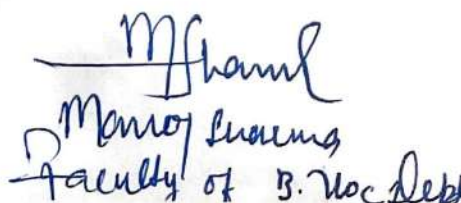 MSharma
Manoj Sharma
Faculty of B. Voc Dept